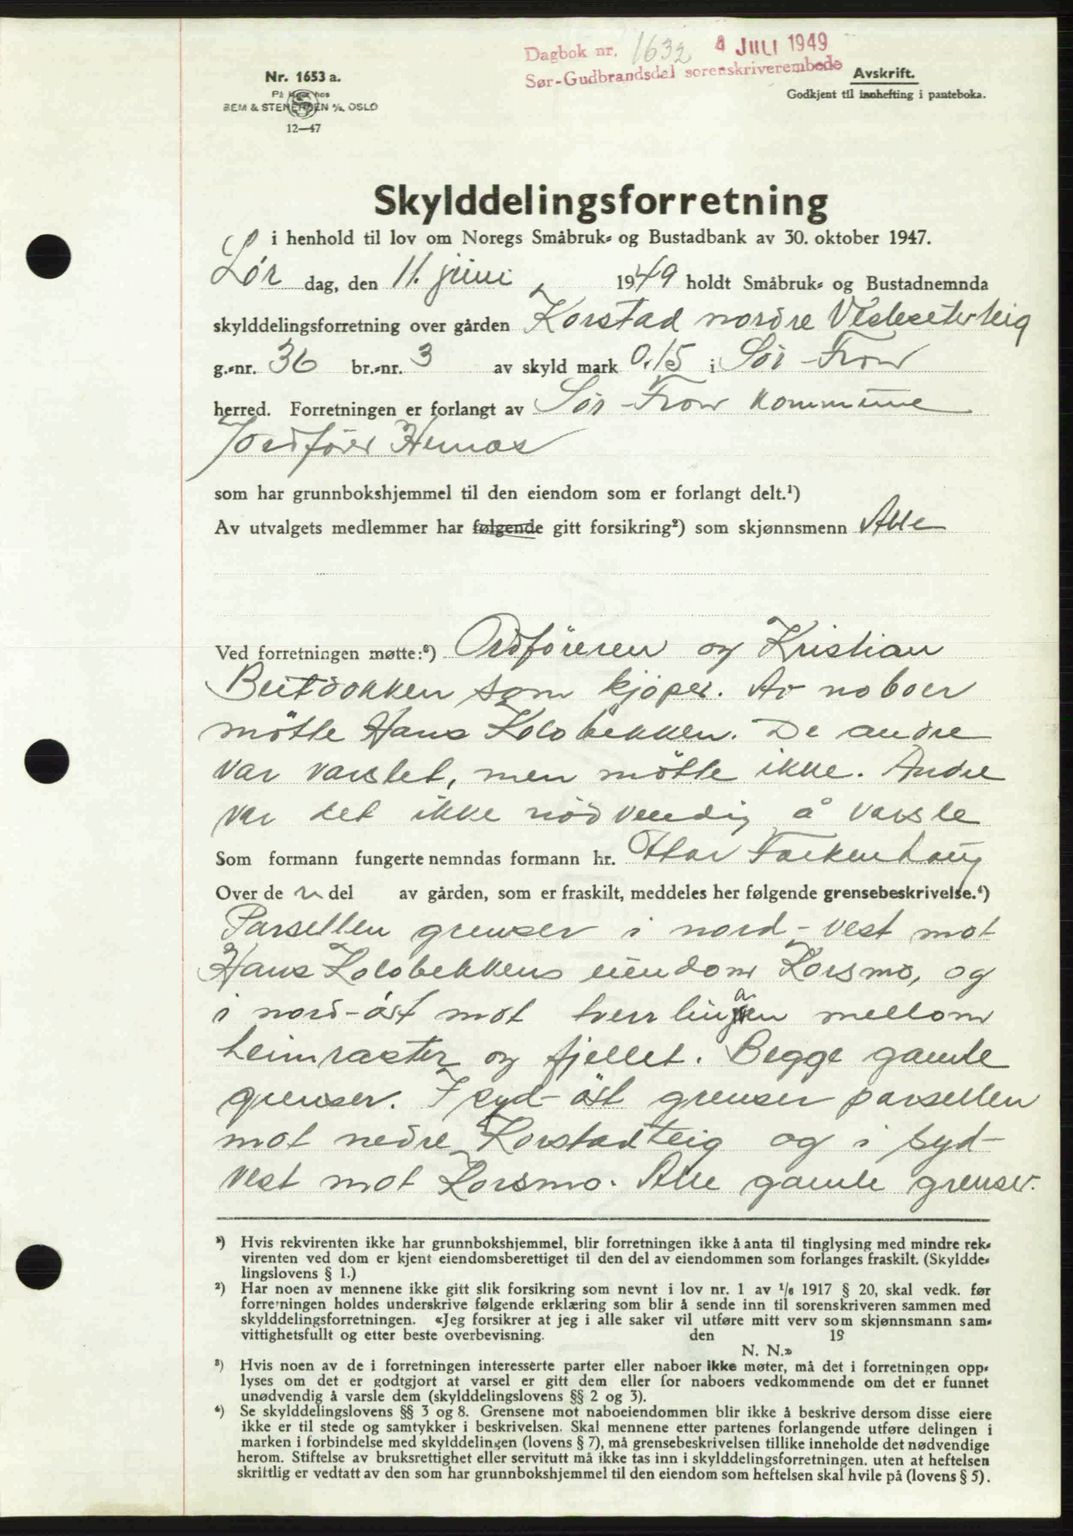 Dagbok nr. 1632 4 JULI 1949
Sør-Gudbrandsdal sorenskriverembede
Avskrift.
Godkjent til innhefting i panteboka.
Nr. 1653 a.
På lager hos
SEM & STENERSEN A/S, OSLO
12—47
Skylddelingsforretning
i henhold til lov om Noregs Småbruk- og Bustadbank av 30. oktober 1947.
Lør dag, den 11. juni 1949 holdt Småbruk- og Bustadnemnda
skylddelingsforretning over gården Korstad nordre Vesleseterteig
g.-nr. 36 br.-nr. 3 av skyld mark 0.15 i Sør-Fron
herred. Forretningen er forlangt av Sør-Fron kommune
som har grunnbokshjemmel til den eiendom som er forlangt delt.¹)
Av utvalgets medlemmer har følgende gitt forsikring²) som skjønnsmenn Alle
Ved forretningen møtte:³) Ordføreren og Kristian
som kjøper. Av naboer
møtte Hans Kolobekken. De andre
var varslet, men møtte ikke. Andre
var det ikke nødvendig å varsle
Som formann fungerte nemndas formann hr.
Over de n del av gården, som er fraskilt, meddeles her følgende grensebeskrivelse.⁴)
Parsellen grenser i nord-vest mot
Hans Kolobekkens eiendom Korsmo, og
i nord-öst mot tverrlinjen mellom
heimraster og fjellet. Begge gamle
grenser. I syd-öst grenser parsellen
mot nedre Korstadteig og i syd-
vest mot Korsmo. Alle gamle grenser.
¹) Hvis rekvirenten ikke har grunnbokshjemmel, blir forretningen ikke å anta til tinglysing med mindre rek-
virenten ved dom er kjent eiendomsberettiget til den del av eiendommen som forlanges fraskilt. (Skyldde-
lingslovens § 1.)
²) Har noen av mennene ikke gitt slik forsikring som nevnt i lov nr. 1 av 1/6 1917 § 20, skal vedk. før
forretningen holdes underskrive følgende erklæring som blir å sende inn til sorenskriveren sammen med
skylddelingsforretningen. «Jeg forsikrer at jeg i alle saker vil utføre mitt verv som skjønnsmann sam-
vittighetsfullt og etter beste overbevisning. den 19
N. N.»
³) Hvis noen av de i forretningen interesserte parter eller naboer ikke møter, må det i forretningen opp-
lyses om det er godtgjort at varsel er gitt dem eller for naboers vedkommende om det er funnet
unødvendig å varsle dem (skylddelingslovens §§ 2 og 3).
⁴) Se skylddelingslovens §§ 3 og 8. Grensene mot naboeiendommen blir ikke å beskrive dersom disse eiere
ikke er til stede og samtykker i beskrivelsen. Skal mennene etter partenes forlangende utføre delingen i
marken i forbindelse med skylddelingen (lovens § 7), må grensebeskrivelsen tillike inneholde det nødvendige
herom. Stiftelse av bruksrettighet eller servitutt må ikke tas inn i skylddelingsforretningen. uten at heftelsen
skriftlig er vedtatt av den som har grunnbokshjemmel til den eiendom som heftelsen skal hvile på (lovens § 5).